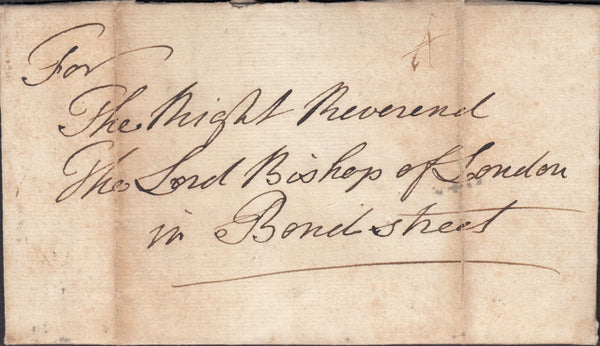 For
The Right Reverend
The Lord Bishop of London
in Bond street